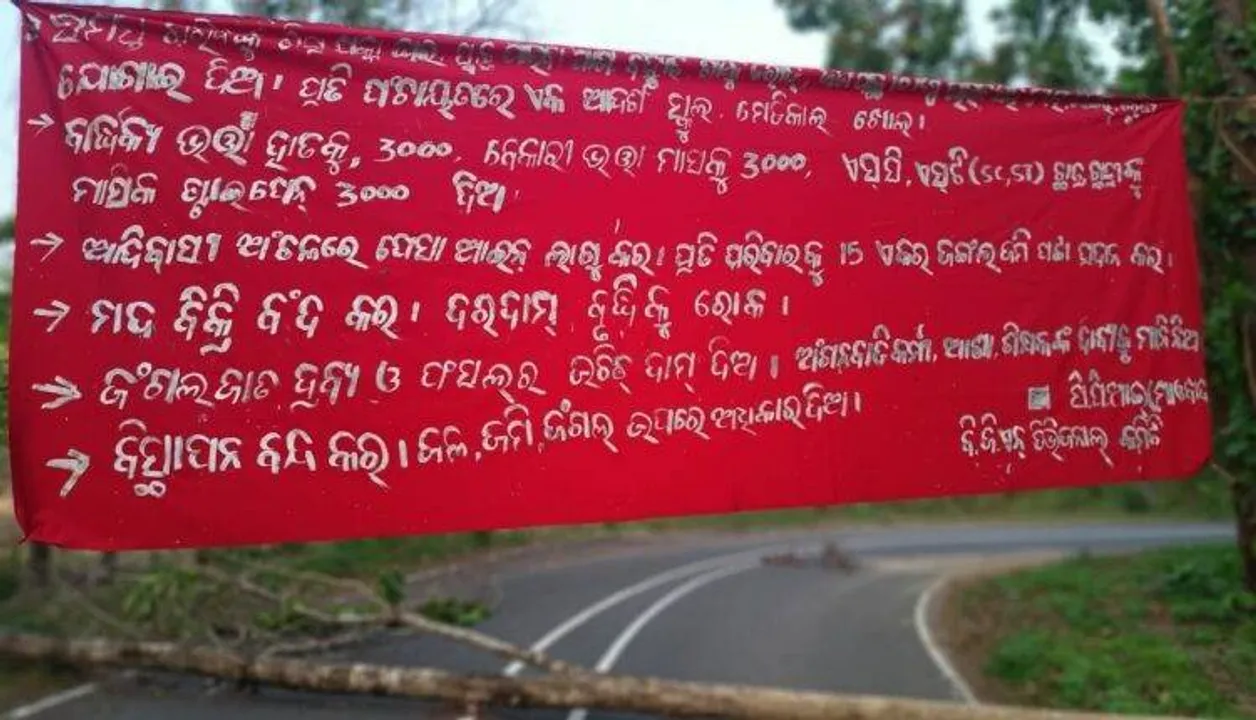 ଯୋଗାଇ ଦିଅ। ପ୍ରତି ପଂଚାୟତରେ ଏକ ଆଦର୍ଶ ସ୍କୁଲ. ମେଡିକାଲ ଖୋଲ।
→ ବାର୍ଦ୍ଧକ୍ୟ ଭତ୍ତା ହାତକୁ, 3000, ବେକାରୀ ଭତ୍ତା ମାସକୁ 3000, ଏସ୍‌ସି, ଏସ୍‌ଟି (SC,ST) ଛାତ୍ରଛାତ୍ରୀଙ୍କୁ
ମାସିକ ଷ୍ଟାଇପେନ୍ 3000 ଦିଅ
→ ଆଦିବାସୀ ଅଂଚଳରେ ପେସା ଆଇନ ଲାଗୁ କର। ପ୍ରତି ପରିବାରକୁ 15 ଏକର ଜଙ୍ଗଲ ଜମି ପଟା ପ୍ରଦାନ କର।
→ ମଦ ବିକ୍ରି ବଂଦ କର। ଦରଦାମ୍ ବୃଦ୍ଧିକୁ ରୋକ।
→ ଜଂଗଲଜାତ ଦ୍ରବ୍ୟ ଓ ଫସଲ୍‌ର ଉଚିତ୍ ଦାମ୍ ଦିଅ। ଅଂଗନବାଡି କର୍ମୀ, ଆଶା, ଶିକ୍ଷକଙ୍କ ଦାବୀକୁ ମାନିନିଅ
→ ବିସ୍ଥାପନ ବନ୍ଦ କର। ଜଳ, ଜମି, ଜଂଗଲ ଉପରେ ଅଧିକାର ଦିଅ।
ସିପିଆଇ(ମାଓବାଦୀ
ବି.ଜି.ଏନ୍ ଡିଭିଜନାଲ୍ କମିଟି